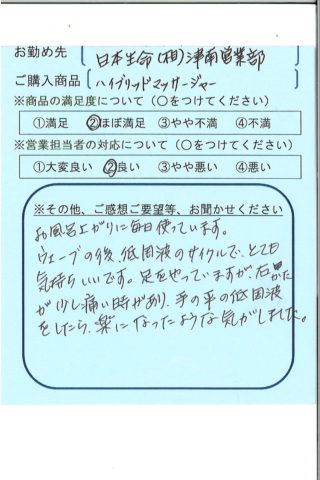 お勤め先 日本生命(相)津南営業部
ご購入商品 ハイブリッドマッサージャー
※商品の満足度について（○をつけてください）
①満足 ②ほぼ満足 ③やや不満 ④不満
※営業担当者の対応について（○をつけてください）
①大変良い ②良い ③やや悪い ④悪い
※その他、ご感想ご要望等、お聞かせください
お風呂上がりに毎日使っています。
ウェーブの後、低周波のサイクルで、とても
気持ちいいです。足をやっていますが、右かた
が少し痛い時があり、手の平の低周波
をしたら、楽になったような気がしました。